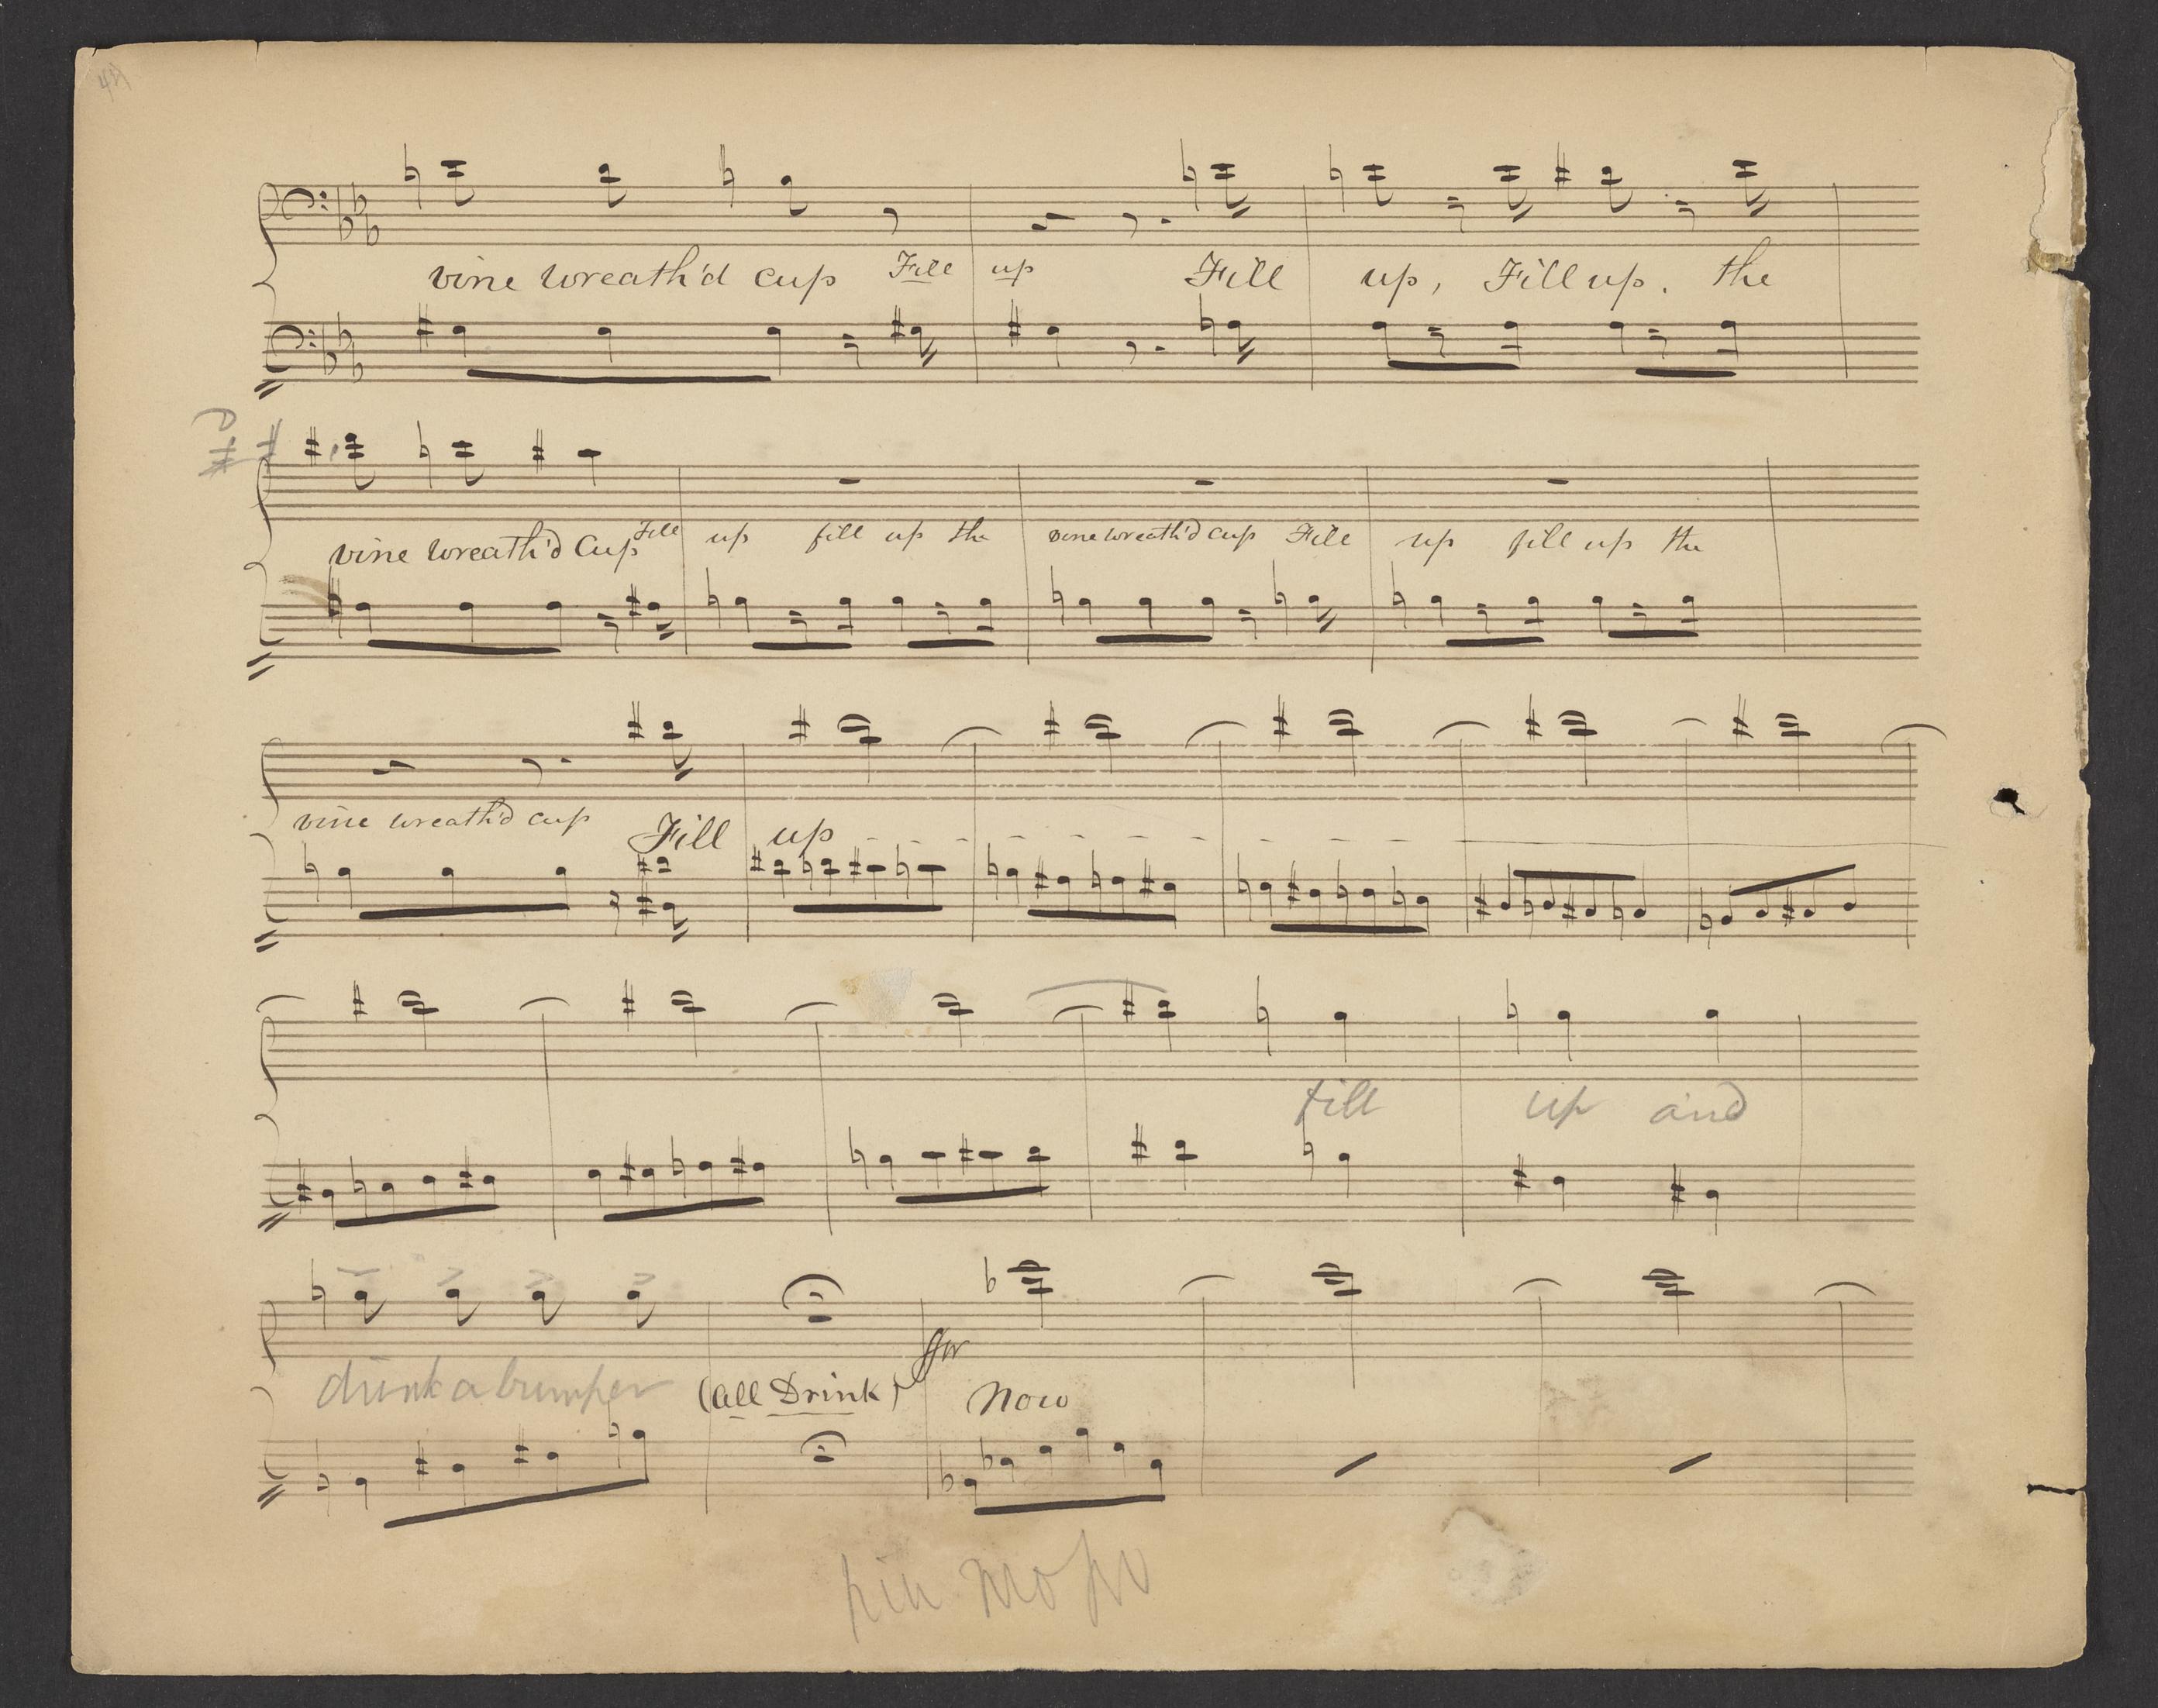 vine wreath'd cup Fill up Fill up, Fill up. the
vine wreath'd Cup Fill up fill up the vine wreath'd cup Fill up fill up the
vine wreath'd cup Fill up
fill up and
drink a bumper (all Drink) ffw Now
piu moſso